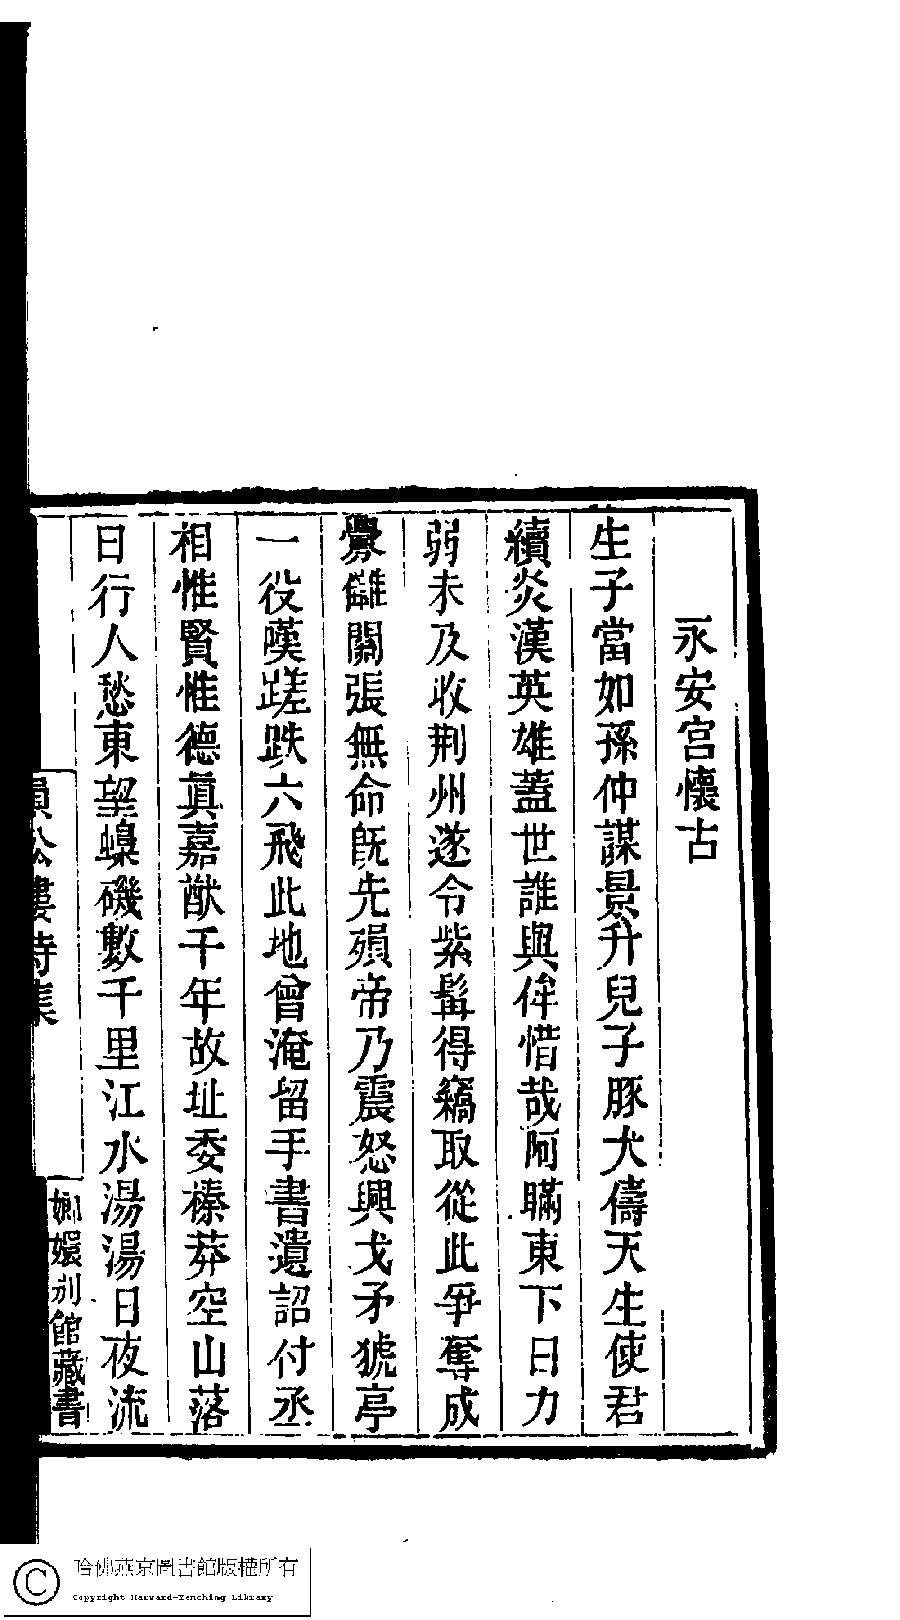 永安宮懷古
生子當如孫仲謀景升兒子豚犬儔天生使君
續炎漢英雄蓋世誰與侔惜哉阿瞞東下日力
弱未及收荆州遂令紫髯得竊取從此爭奪成
釁讎關張無命旣先殞帝乃震怒興戈矛猇亭
一役嘆蹉跌六飛此地曾淹留手書遺詔付丞
相惟賢惟德眞嘉猷千年故址委榛莽空山落
日行人愁東望蟂磯數千里江水湯湯日夜流
韻松樓詩集
嫏嬛別館藏書
哈佛燕京圖書館版權所有
Copyright Harvard-Yenching Library